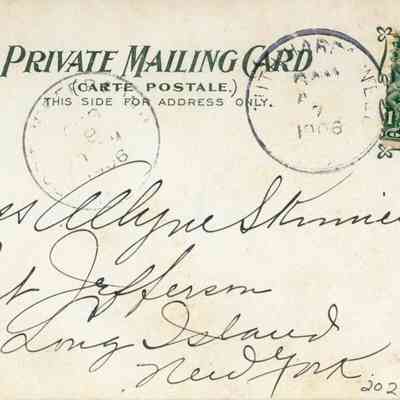 PRIVATE MAILING CARD
(CARTE POSTALE.)
THIS SIDE FOR ADDRESS ONLY.
7
1906
ss Allyne Skinne
t Jefferson
Long Island
New York.
202